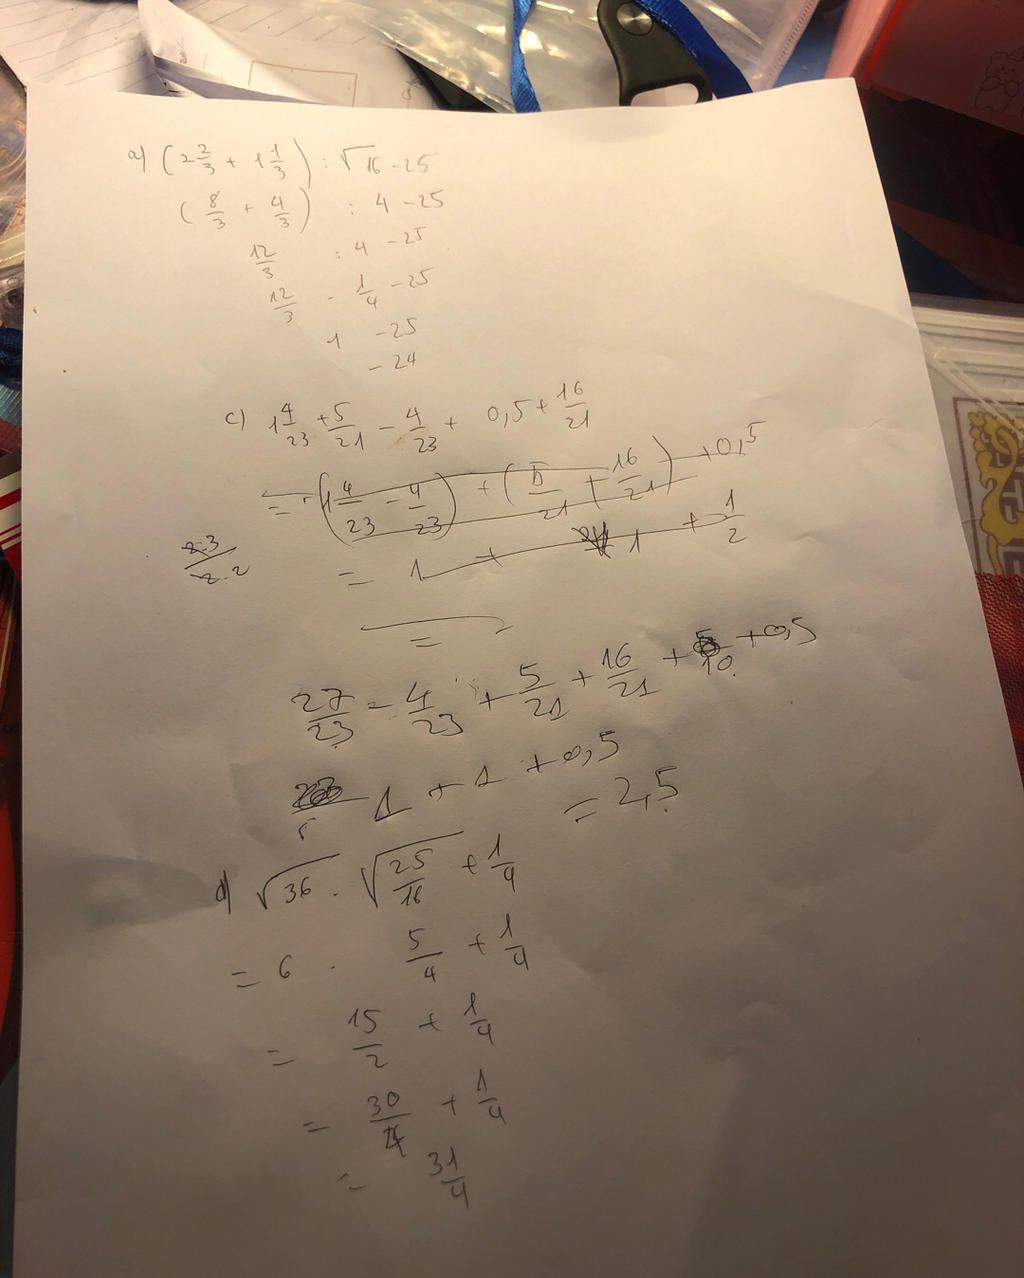 a) (2 2/3 + 1 1/3) : √16 - 25
(8/3 + 4/3) : 4 - 25
12/3 : 4 - 25
12/3 - 1/4 - 25
1 - 25
- 24
c) 1 4/23 + 5/21 - 4/23 + 0,5 + 16/21
= (1 4/23 - 4/23) + (5/21 + 16/21) + 0,5
2.3/2.2
= 1 + 1 + 1/2
=
27/23 - 4/23 + 5/21 + 16/21 + 5/10 + 0,5
1 + 1 + 0,5
= 2,5
d) √36 . √25/16 + 1/4
= 6 . 5/4 + 1/4
= 15/2 + 1/4
= 30/4 + 1/4
= 31/4